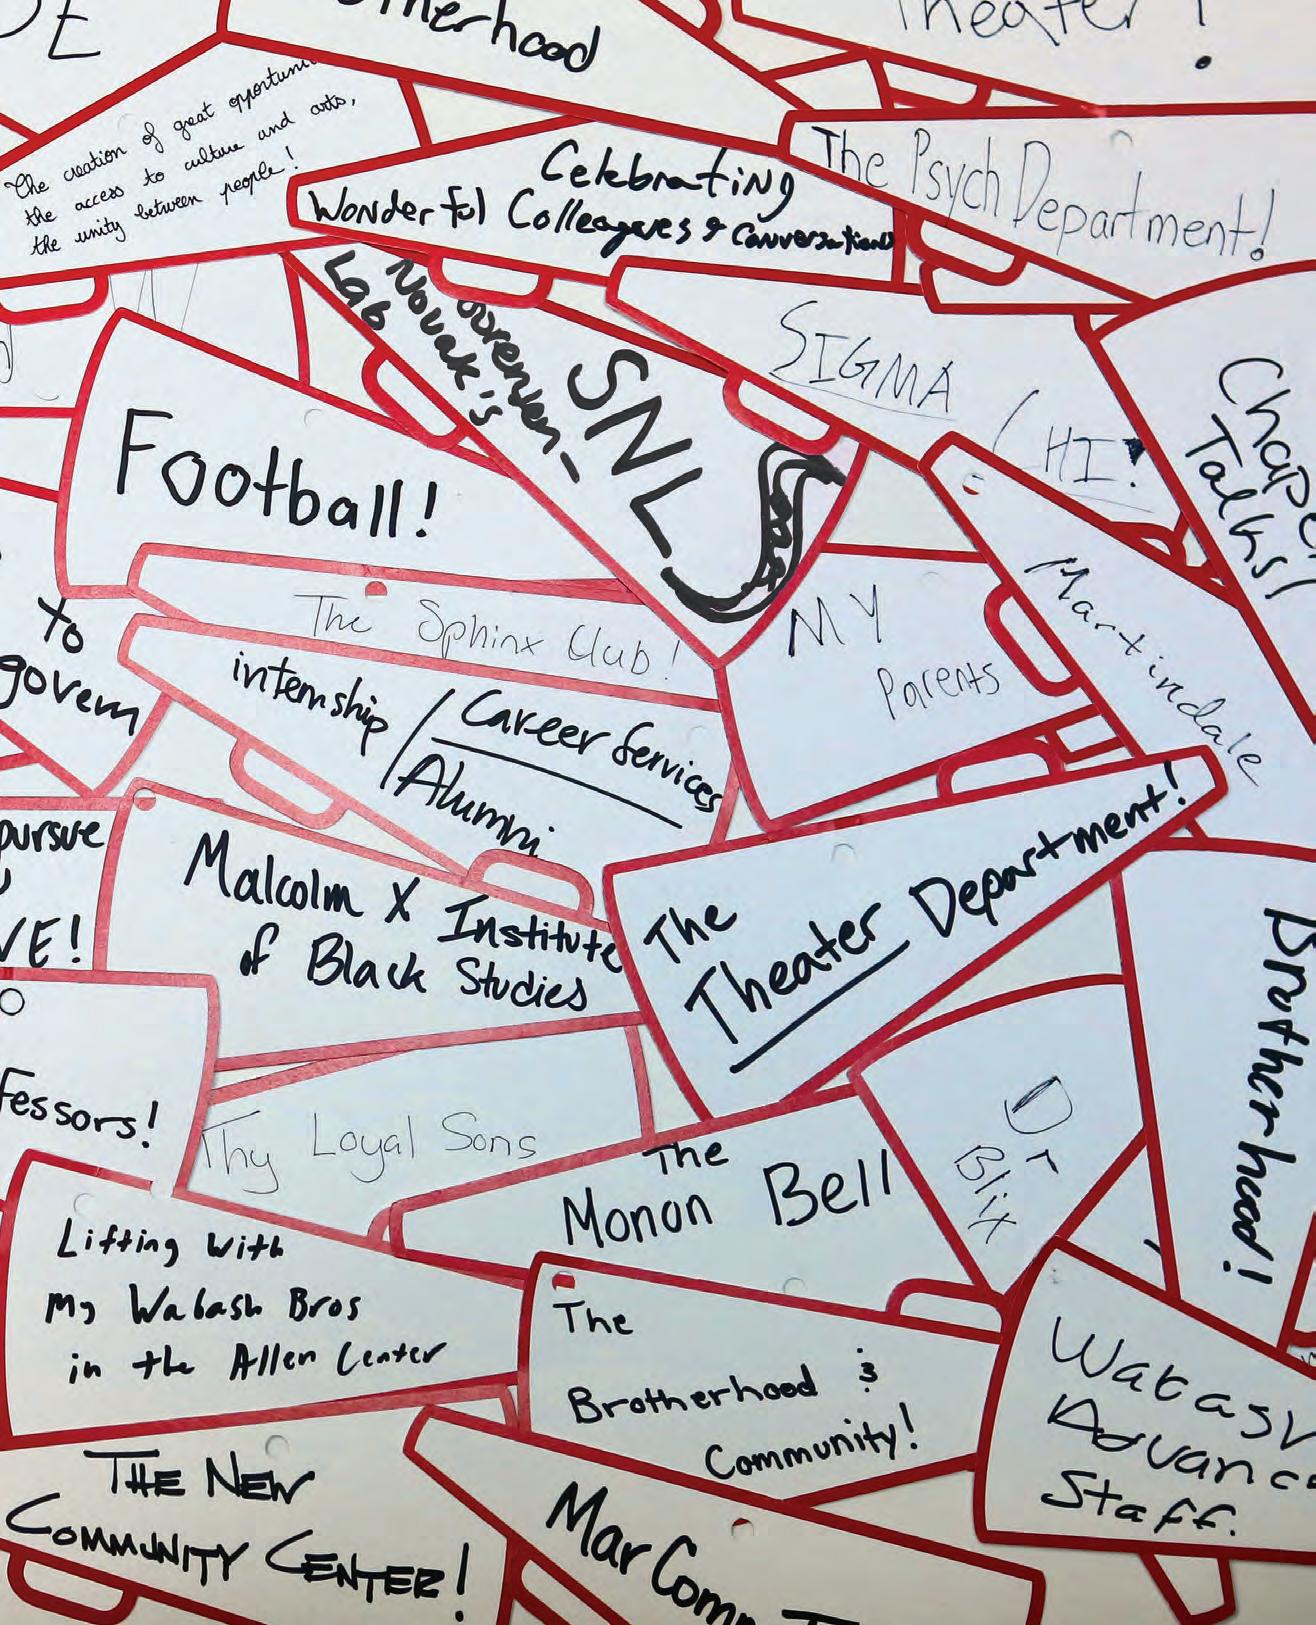 Theater!
The creation of great
the access to culture and arts,
the unity between people!
Celebrating
Wonderful Colleagues & Conversations
The Psych Department!
SNL
Novak's
Lab
SIGMA
CHI!
Talks!
Football!
Martindale
MY
Parents
The Sphinx Club!
to
govern
internship / Career Services
Alumni
pursue
Malcolm X Institute
of Black Studies
The
Theater Department!
Brotherhood!
Dr
Blix
Thy Loyal Sons
The
Monon Bell
Lifting with
My Wabash Bros
in the Allen Center
The
Brotherhood &
Community!
Staff.
THE NEW
COMMUNITY CENTER!
MarComm